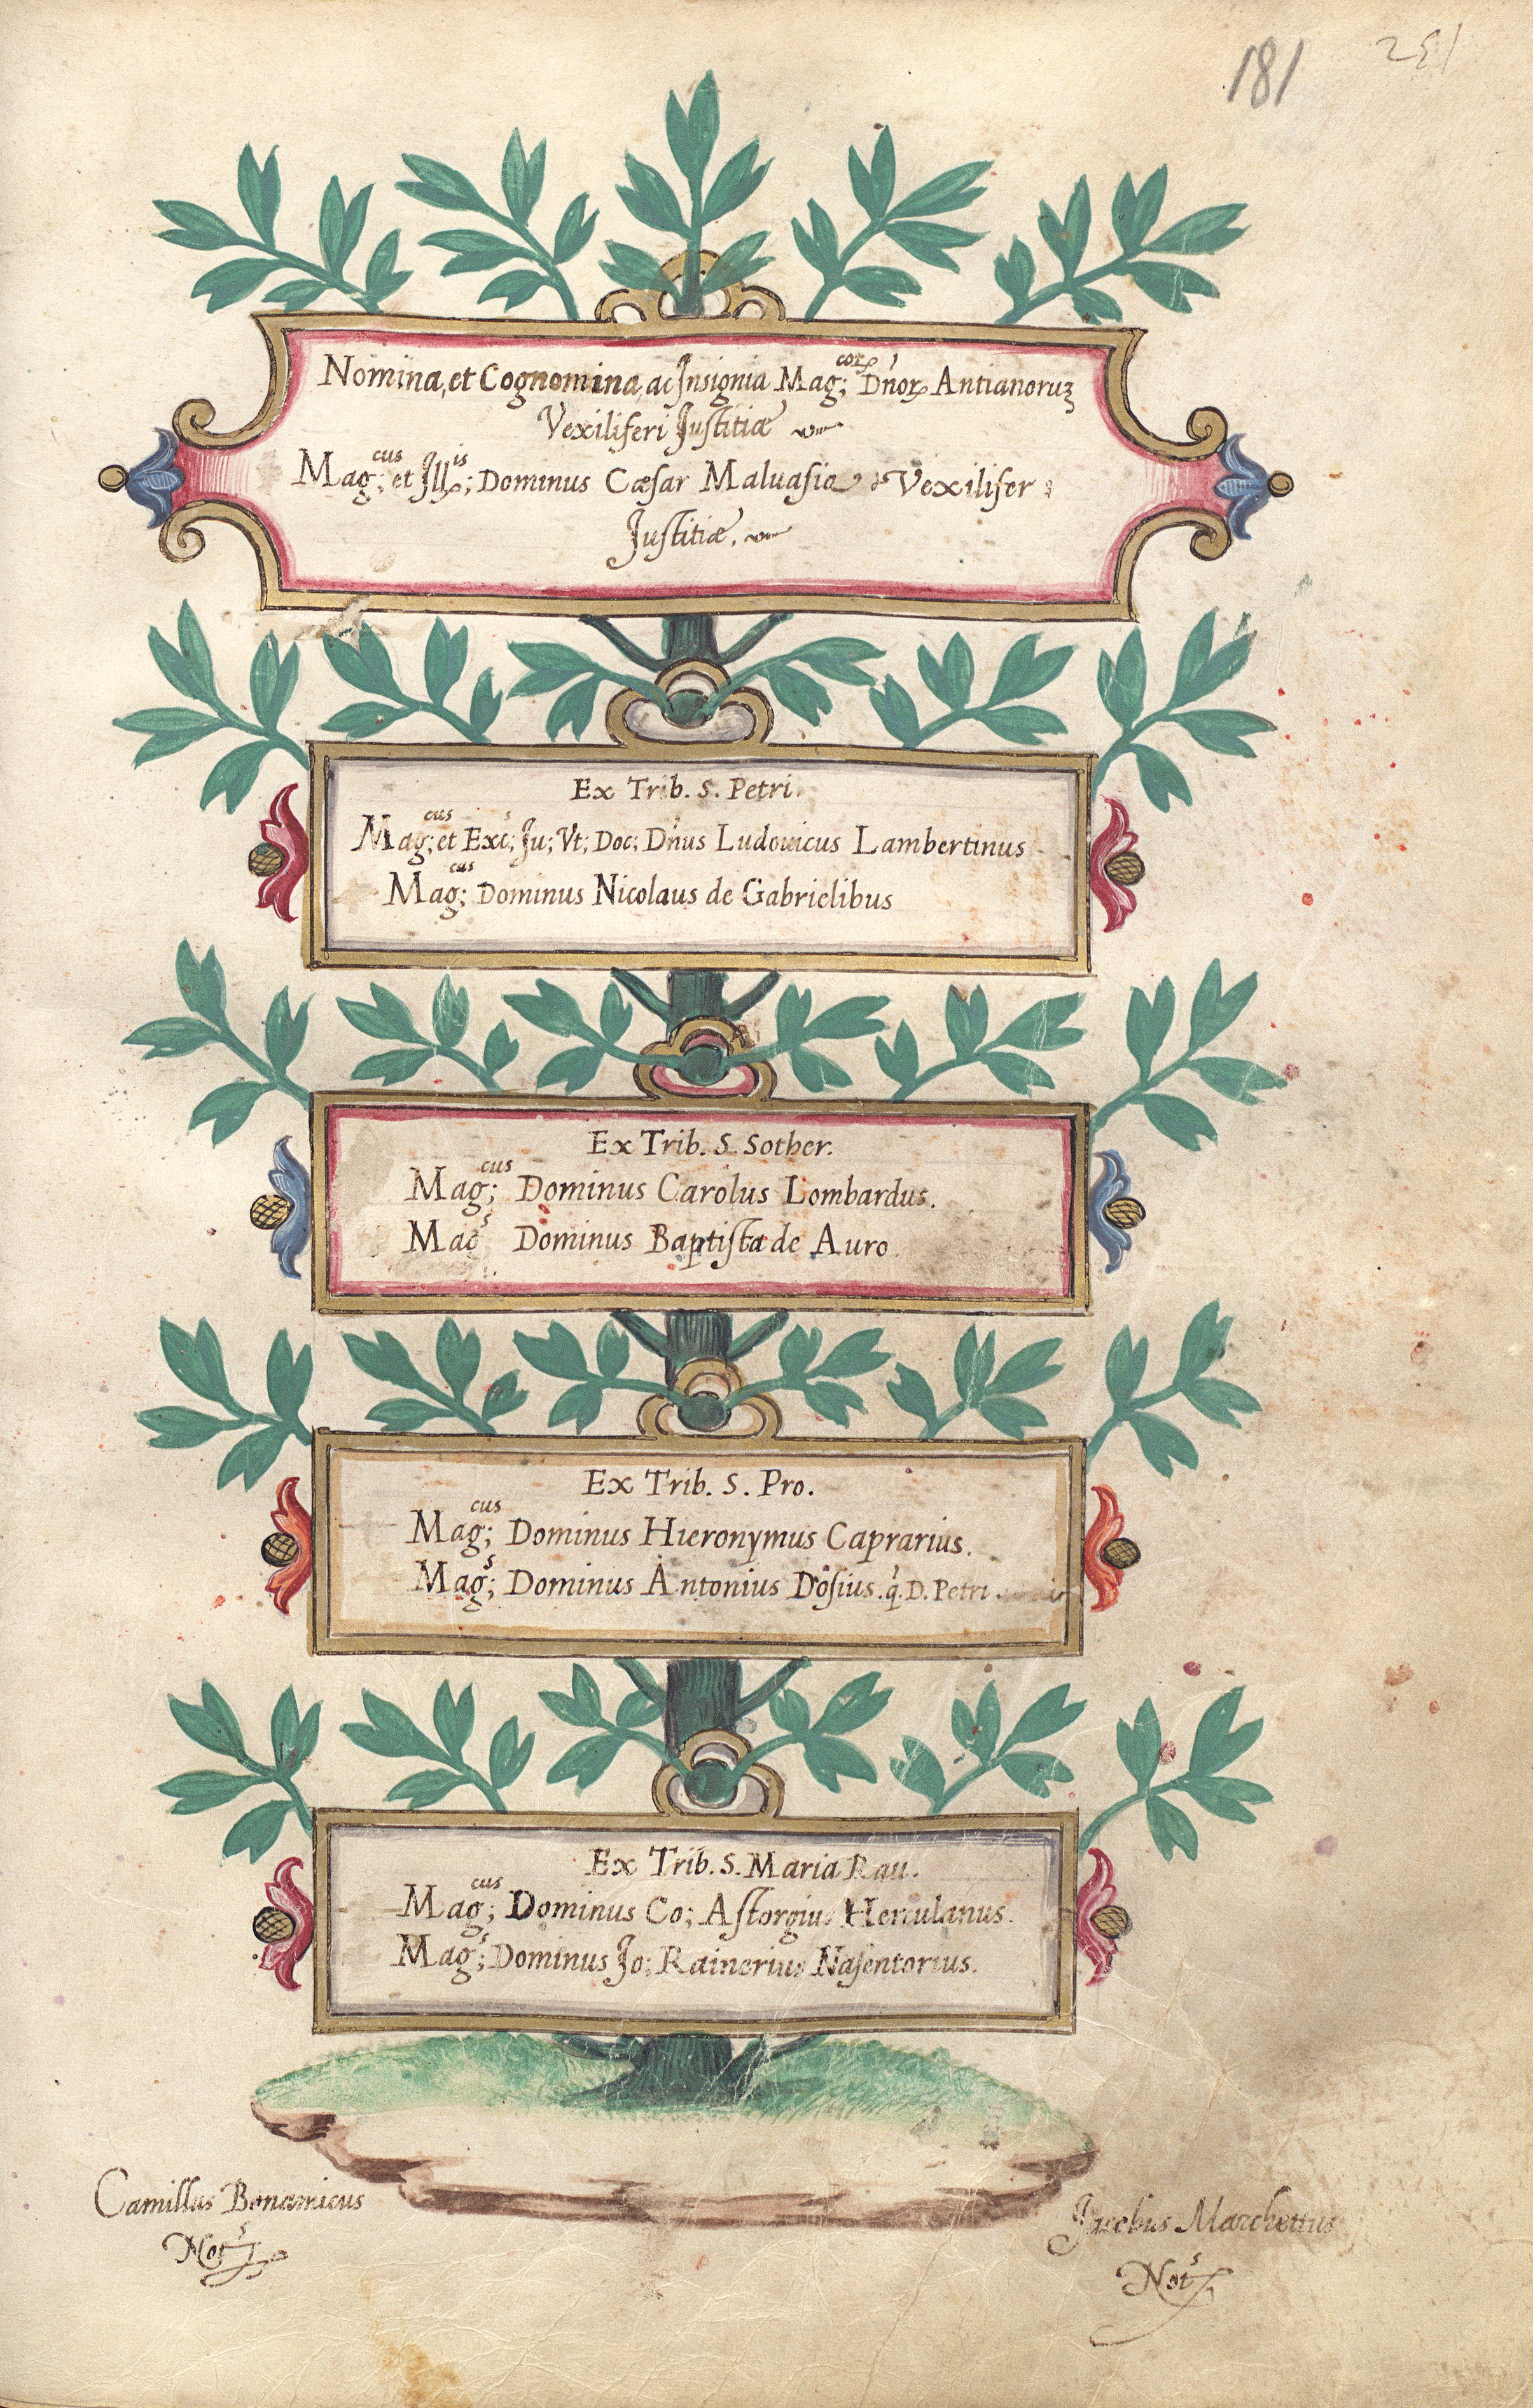 181
Nomina, et Cognomina, ac Insignia Mag;corꝝ Dn̕orꝝ Antianoruꝫ
Vexiliferi Justitiæ
Mag;cus et Illis; Dominus Cæsar Maluasia Vexilifer
Justitiæ.
Ex Trib. S. Petri.
Mag;cus et Exc;s Ju; Vt; Doc; Dn̕us Ludouicus Lambertinus
Mag;cus Dominus Nicolaus de Gabrielibus
Ex Trib. S. Sother.
Mag;cus Dominus Carolus Lombardus.
Mac̕s Dominus Baptista de Auro
Ex Trib. S. Pro.
Mag;cus Dominus Hieronymus Caprarius.
Mag;s Dominus Antonius Dosius. q̕. D. Petri
Ex Trib. S. Maria Rau.
Mag;cus Dominus Co; Astorgius Herculanus.
Mag;s Dominus Jo; Rainerius Nasentorius.
Camillus Bonamicus
Nots
Jacobus Marchettus
Nots